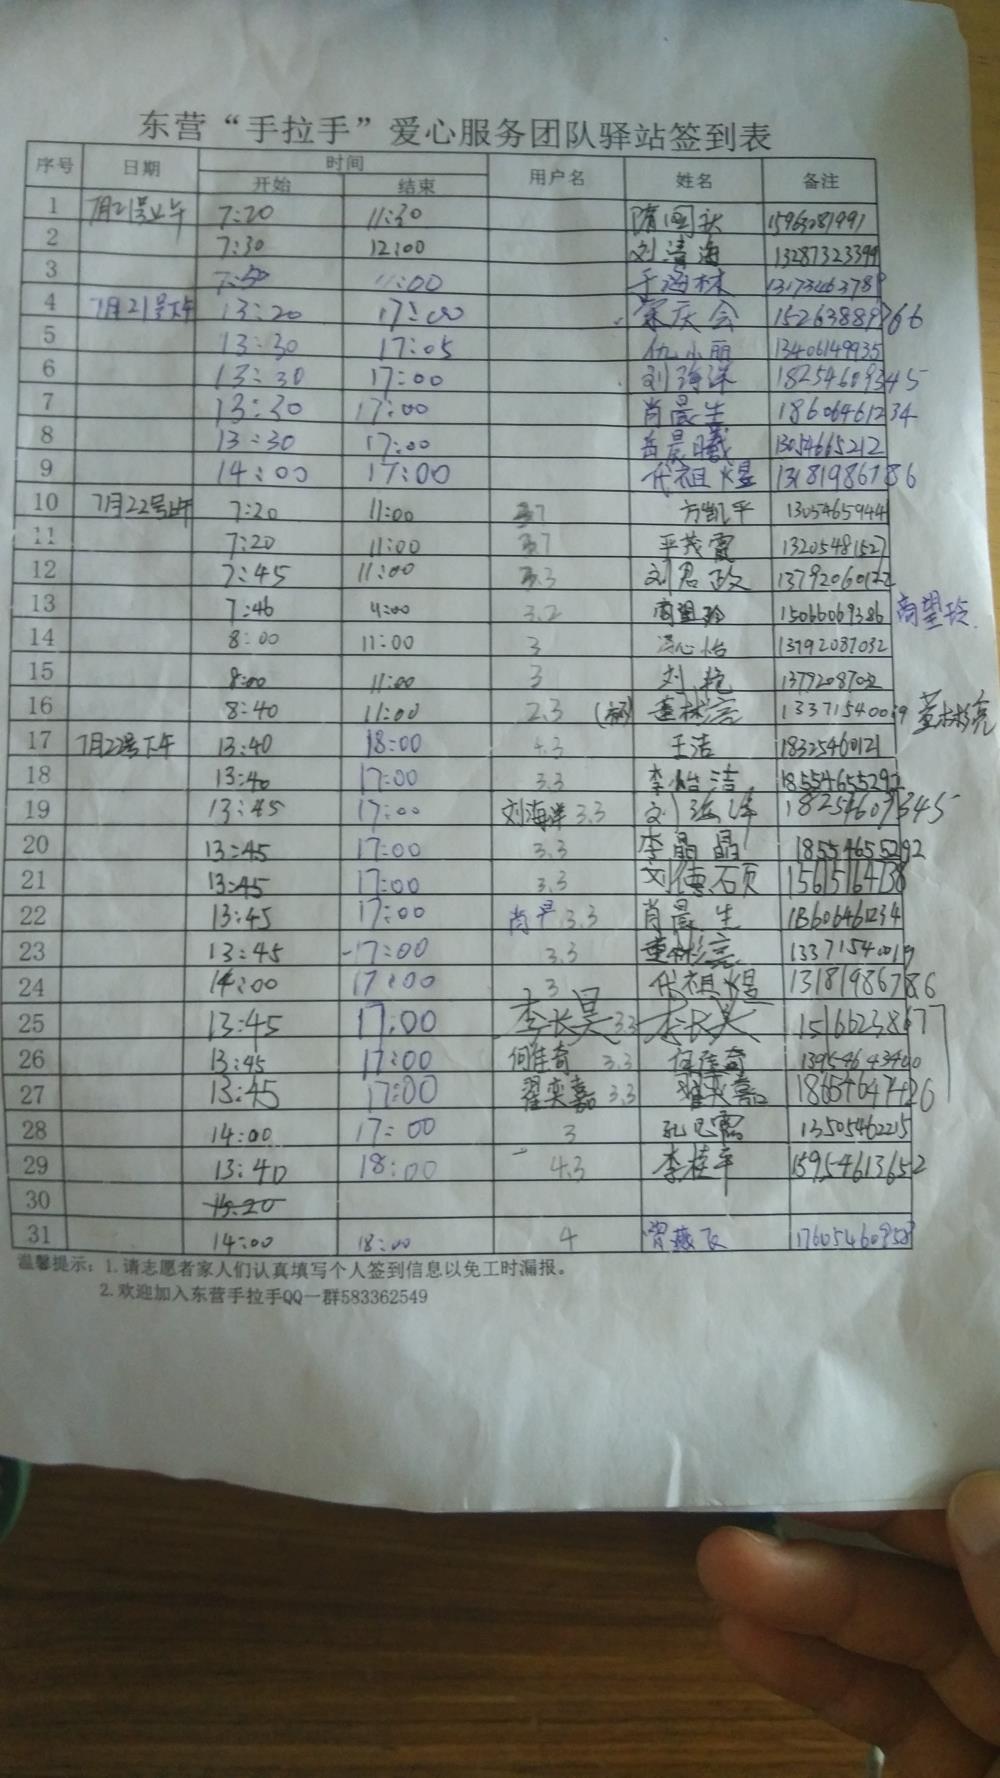 东营“手拉手”爱心服务团队驿站签到表
序号 日期 时间 用户名 姓名 备注
开始 结束
1 7月21号上午 7:20 11:30 隋国 15963281991
2 7:30 12:00 刘清海 13287323399
3 7:50 11:00 于海林 1317346378
4 7月21号下午 13:20 17:00 宋庆会 15263889766
5 13:30 17:05 仇小丽 13406149935
6 13:30 17:00 刘海洋 18254609345
7 13:30 17:00 肖晨生 18606461234
8 13:30 17:00 岳晨曦 13054665212
9 14:00 17:00 代祖煜 13181986786
10 7月22号上午 7:20 11:00 3.7 方凯平 13054659444
11 7:20 11:00 3.7 平茂霞 13205481527
12 7:45 11:00 3.3 刘君政 13792060122
13 7:46 11:00 3.2 商望玲 15066069386 商望玲
14 8:00 11:00 3 心怡 13792087032
15 8:00 11:00 3 刘艳 13792087032
16 8:40 11:00 2.3 董彬亮 13371540019 董彬亮
17 7月22号下午 13:40 18:00 4.3 王洁 18325460121
18 13:40 17:00 3.3 李怡洁 18554655292
19 13:45 17:00 刘海洋 3.3 刘海洋 18254609345
20 13:45 17:00 3.3 李晶晶 18554655292
21 13:45 17:00 3.3 刘德硕 15615164738
22 13:45 17:00 肖早 3.3 肖晨生 18606461234
23 13:45 17:00 3.3 董彬亮 13371540019
24 14:00 17:00 3 代祖煜 13181986786
25 13:45 17:00 李长昊 3.3 李长昊 15166238677
26 13:45 17:00 何佳奇 3.3 何佳奇 13954643400
27 13:45 17:00 翟奕嘉 3.3 翟奕嘉 18654647426
28 14:00 17:00 3 孔思霈 13505462215
29 13:40 18:00 4.3 李桂平 15954613652
30
31 14:00 18:00 4 燕飞 17605460958
温馨提示：1.请志愿者家人们认真填写个人签到信息以免工时漏报。
2.欢迎加入东营手拉手QQ一群583362549